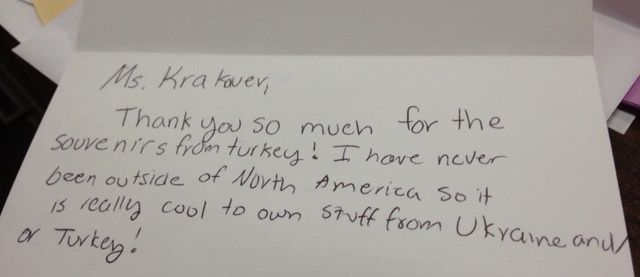 Ms. Krakover,
Thank you so much for the
souvenirs from turkey! I have never
been outside of North America so it
is really cool to own stuff from Ukraine and/
or Turkey!